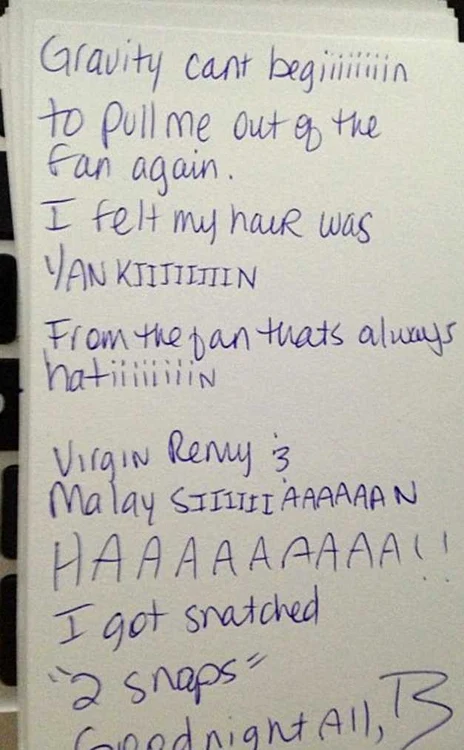 Gravity cant begiiiiiiiin
to pull me out of the
fan again.
I felt my hair was
YANKIIIIIIIIN
From the fan thats always
hatiiiiiiiiiN
Virgin Remy &
Malay SIIIIIIAAAAAAN
HAAAAAAAAA!!
I got snatched
"2 snaps"
Goodnight All, B